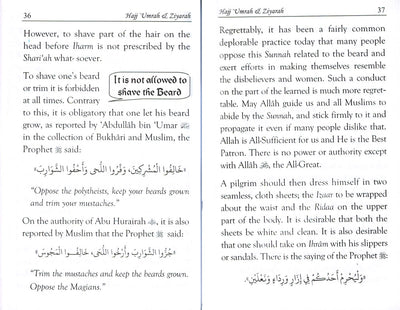 36
Hajj 'Umrah & Ziyarah
However, to shave part of the hair on
the head before Iharm is not prescribed by the
Shari'ah what- soever.
To shave one's beard
or trim it is forbidden
at all times. Contrary
It is not allowed to
shave the Beard
to this, it is obligatory that one let his beard
grow, as reported by 'Abdullâh bin 'Umar ﷺ
in the collection of Bukhâri and Muslim, the
Prophet ﷺ said:
«خَالِفُوا الْمُشْرِكِينَ، وَفِّرُوا اللُّحَى وَأَحْفُوا الشَّوَارِبَ»
"Oppose the polytheists, keep your beards grown
and trim your mustaches."
On the authority of Abu Hurairah, it is also
reported by Muslim that the Prophet ﷺ said:
«جُزُّوا الشَّوَارِبَ وَأَرْخُوا اللُّحَى، خَالِفُوا الْمَجُوسَ»
"Trim the mustaches and keep the beards grown.
Oppose the Magians."
Hajj 'Umrah & Ziyarah
37
Regrettably, it has been a fairly common
deplorable practice today that many people
oppose this Sunnah related to the beard and
exert efforts in making themselves resemble
the disbelievers and women. Such a conduct
on the part of the learned is much more regret-
table. May Allâh guide us and all Muslims to
abide by the Sunnah, and stick firmly to it and
propagate it even if many people dislike that.
Allah is All-Sufficient for us and He is the Best
Patron. There is no power or authority except
with Allâh, the All-Great.
A pilgrim should then dress himself in two
seamless, cloth sheets; the Izaar to be wrapped
about the waist and the Ridaa on the upper
part of the body. It is desirable that both the
sheets be white and clean. It is also desirable
that one should take on Ihrâm with his slippers
or sandals. There is the saying of the Prophet ﷺ:
«وَلْيُحْرِمْ أَحَدُكُمْ فِي إِزَارٍ وَرِدَاءٍ وَنَعْلَيْنِ»